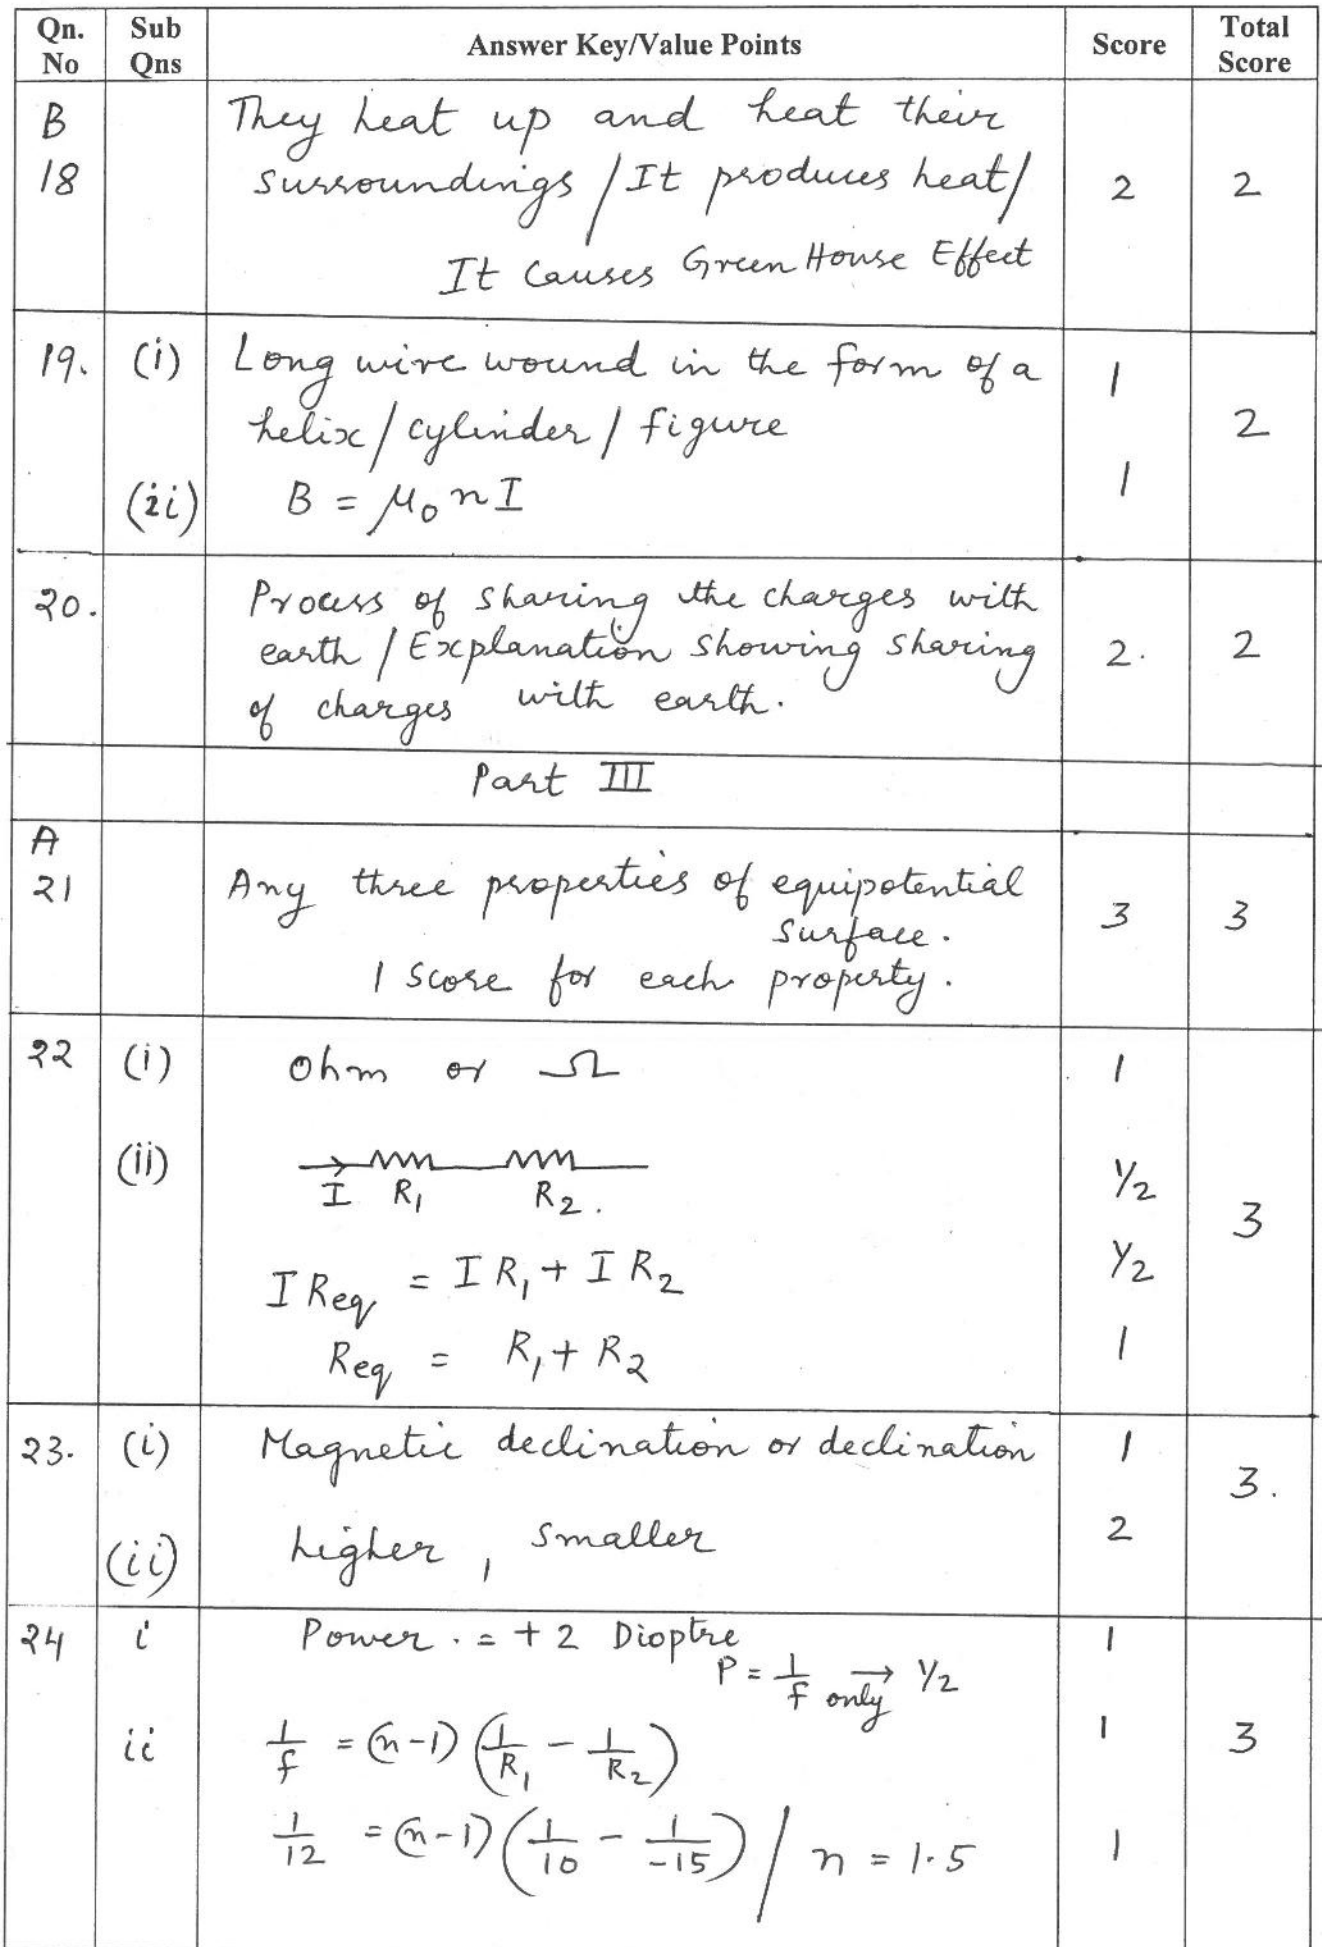 Qn. No Sub Qns Answer Key/Value Points Score Total Score
B
18 They heat up and heat their
surroundings / It produces heat/ 2 2
It causes Green House Effect
19. (i) Long wire wound in the form of a 1
helix / cylinder / figure 2
(ii) B = μ₀ n I 1
20. Process of sharing the charges with
earth / Explanation showing sharing 2. 2
of charges with earth.
Part III
A
21 Any three properties of equipotential 3 3
surface.
1 score for each property.
22 (i) Ohm or Ω 1
(ii) I R₁ R₂. ½ 3
I Req = I R₁ + I R₂ ½
Req = R₁ + R₂ 1
23. (i) Magnetic declination or declination 1 3.
(ii) higher, smaller 2
24 i Power . = + 2 Dioptre 1
P = 1/f only → ½
ii 1/f = (n-1) (1/R₁ - 1/R₂) 1 3
1/12 = (n-1) (1/10 - 1/-15) / n = 1.5 1